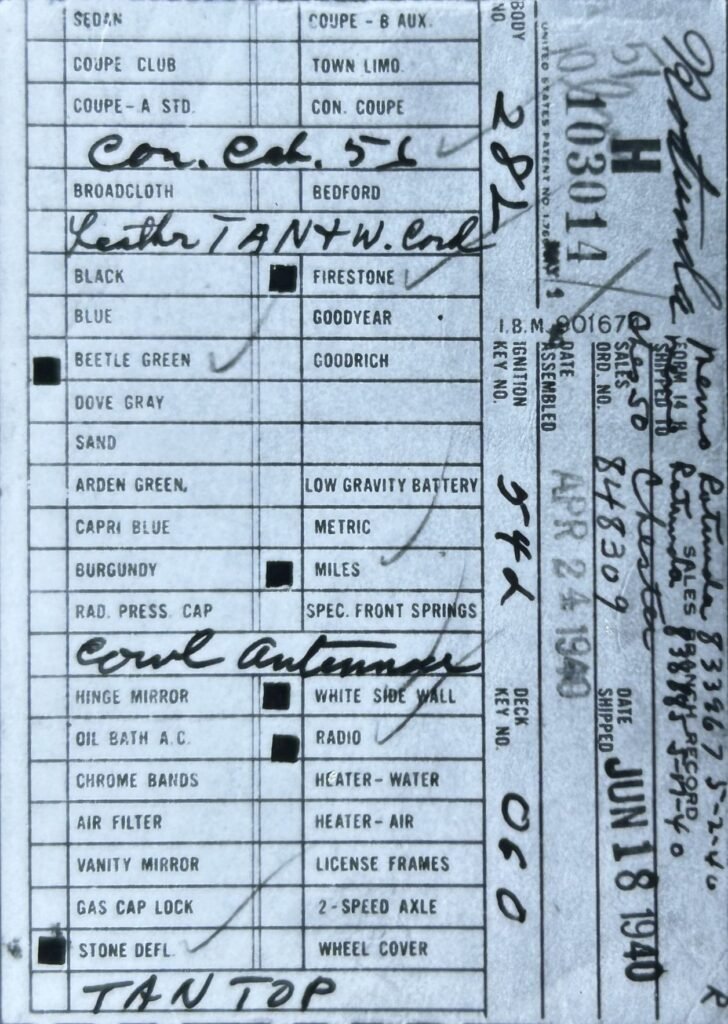 SEDAN COUPE - B AUX.
COUPE CLUB TOWN LIMO.
COUPE - A STD. CON. COUPE
Con. Cab. 56
BROADCLOTH BEDFORD
Leather TAN + W. Cord
BLACK FIRESTONE
BLUE GOODYEAR
BEETLE GREEN GOODRICH
DOVE GRAY
SAND
ARDEN GREEN. LOW GRAVITY BATTERY
CAPRI BLUE METRIC
BURGUNDY MILES
RAD. PRESS. CAP SPEC. FRONT SPRINGS
Cowl Antennae
HINGE MIRROR WHITE SIDE WALL
OIL BATH A.C. RADIO
CHROME BANDS HEATER - WATER
AIR FILTER HEATER - AIR
VANITY MIRROR LICENSE FRAMES
GAS CAP LOCK 2 - SPEED AXLE
STONE DEFL. WHEEL COVER
TAN TOP
BODY NO. 28L
IGNITION KEY NO. 542
DECK KEY NO. 060
UNITED STATES PATENT NO.
I.B.M. 901676
H 103014
DATE ASSEMBLED APR 24 1940
SALES ORD. NO. 848309
DATE SHIPPED JUN 18 1940
FORM 14 H
SHIPPED TO Chester
SALES BRANCH RECORD
Rotunda
Memo Rotunda 833967 5-2-40
Rotunda 5-17-40